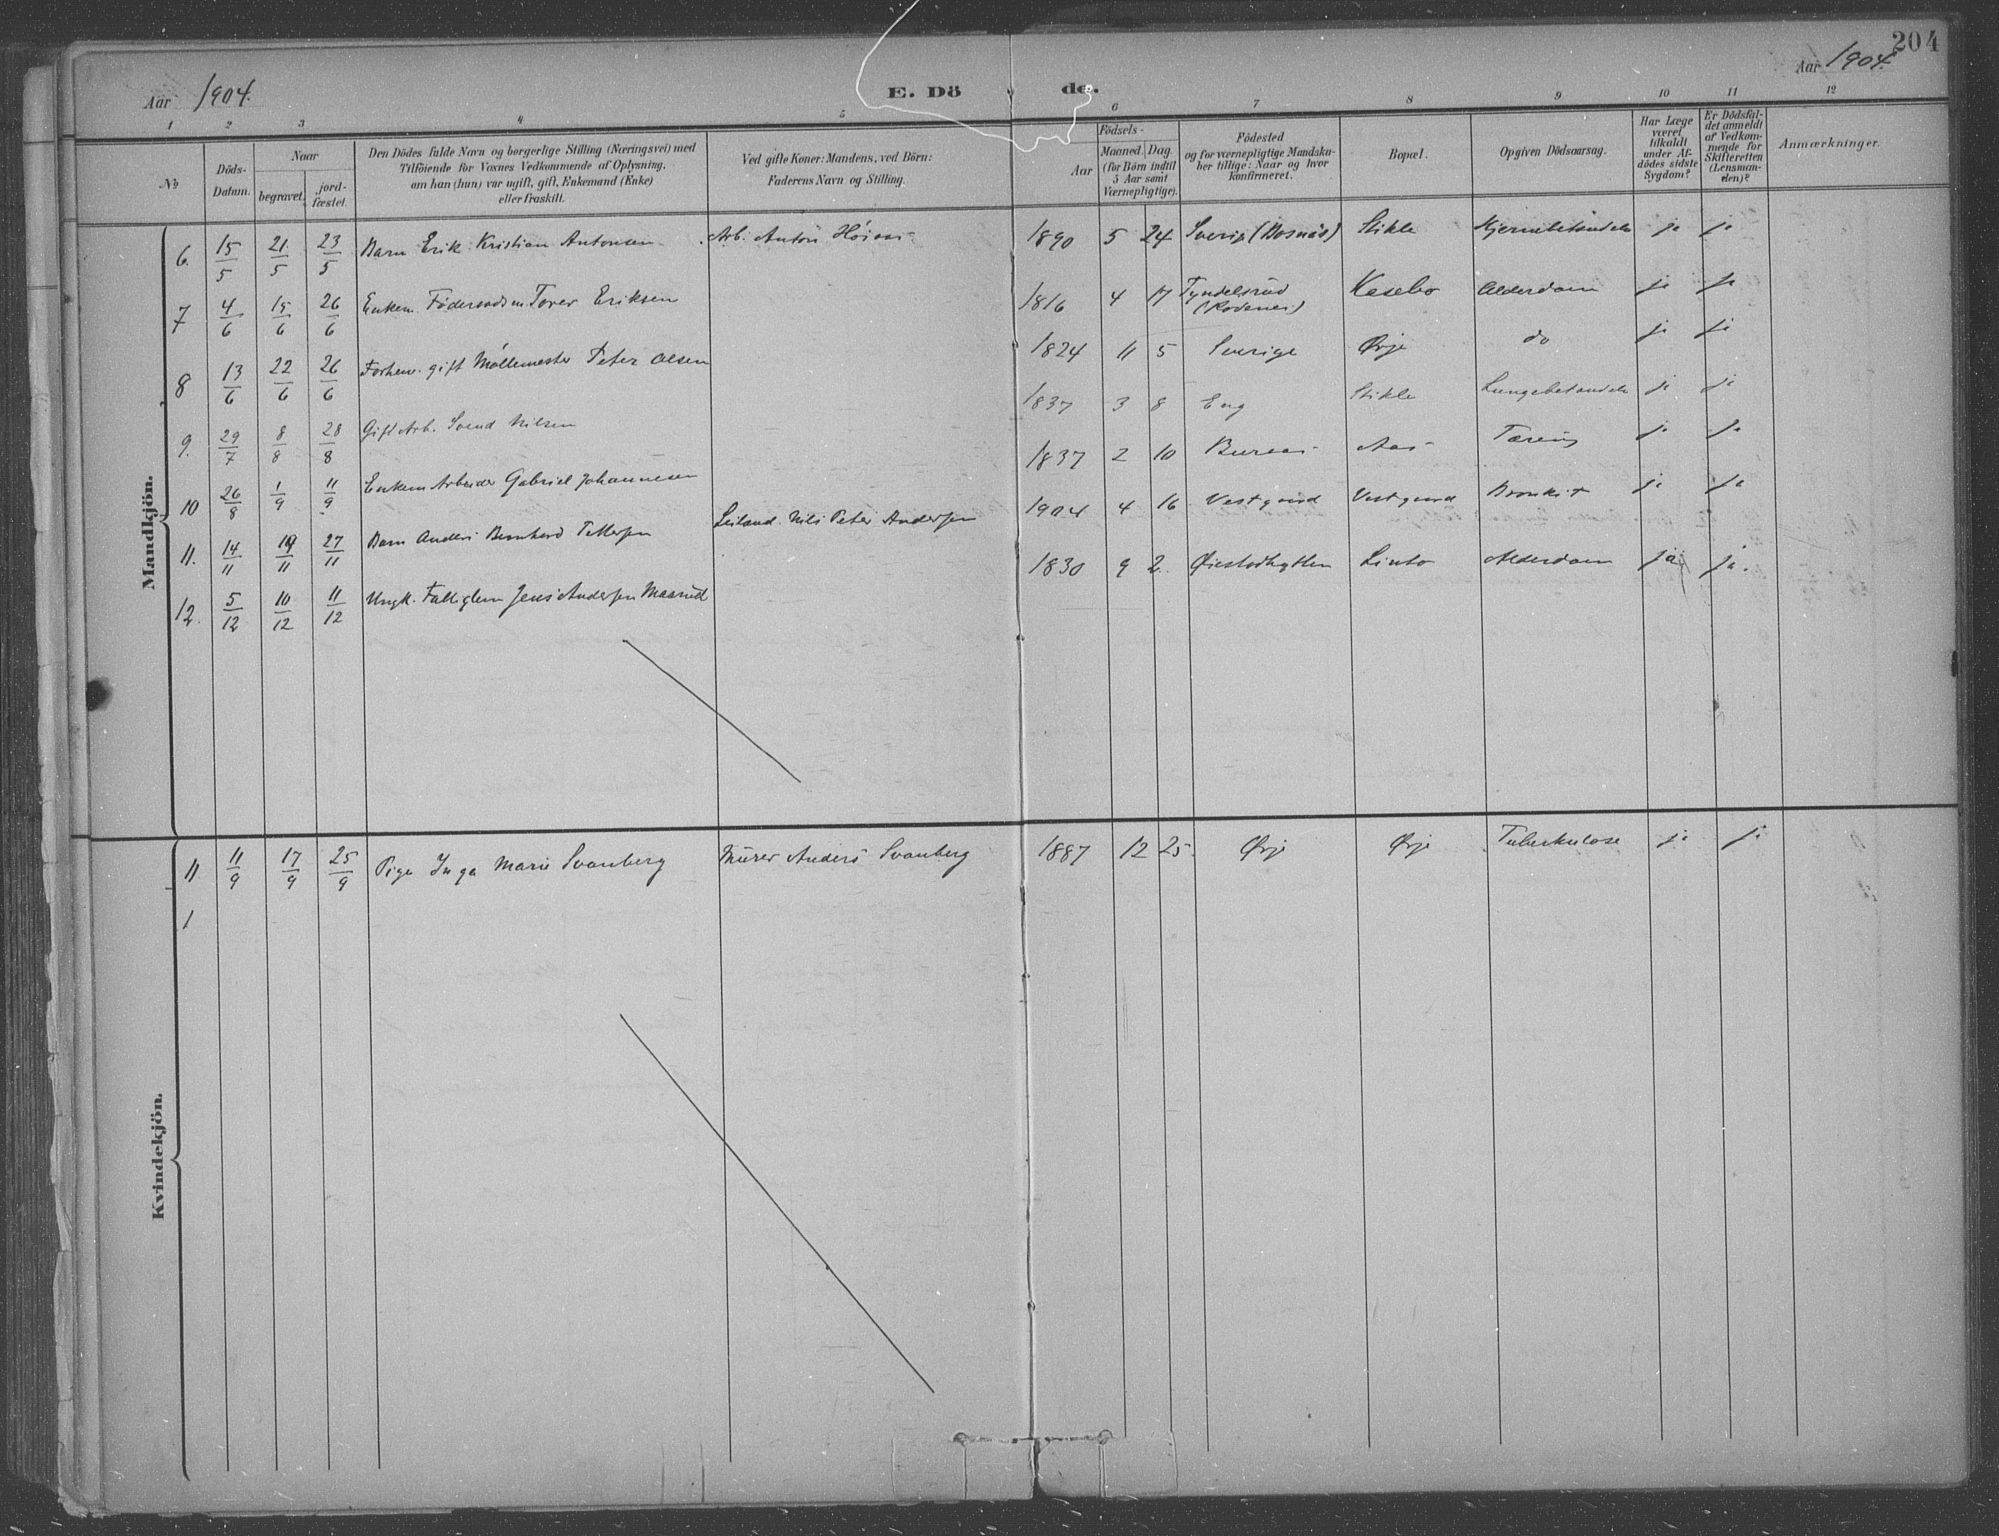 204
Aar 1904. E. Dö de. Aar 1904.
1 2 3 4 5 6 7 8 9 10 11 12
No
Döds-Datum.
Naar
begravet.
jord-fæstet.
Den Dödes fulde Navn og borgerlige Stilling (Næringsvei) med
Tilföiende for Voxnes Vedkommende af Oplysning,
om han (hun) var ugift, gift, Enkemand (Enke)
eller fraskilt.
Ved gifte Koner: Mandens, ved Börn:
Faderens Navn og Stilling.
Födsels-
Aar
Maaned. Dag.
(for Börn indtil
5 Aar samt
Værnepligtige).
Födested
og for værnepligtige Mandska-
ber tillige: Naar og hvor
konfirmeret.
Bopæl.
Opgiven Dödsaarsag.
Har Læge
været
tilkaldt
under Af-
dödes sidste
Sygdom?
Er Dödsfal-
det anmeldt
af Vedkom-
mende for
Skifteretten
(Lensman-
den)?
Anmærkninger.
Mandkjön.
6. 15/5 21/5 23/5 Barn Erik Kristian Antonsen Arb. Anton 1890 5 24 Stikle ja ja
7 4/6 15/6 26/6 Enkem. Föderaadsm Tover Eriksen 1816 4 17 Tyndelsrud (Rödenes) Kasebo Alderdom ja ja
8 13/6 22/6 26/6 Forhenv. gift Møllemester Peter Olsen 1824 11 5 Sverige Ørje do ja ja
9. 29/7 8/8 28/8 Gift Arb. Svend Nilsen 1837 3 8 Eng Stikle Lungebetændelse ja ja
10 26/8 1/9 11/9 Enkem Arbeider Gabriel Johannesen 1837 2 10 Aas Tæring ja ja
11. 14/11 19/11 27/11 Barn Anders Bernhard Pettersen Leiland. Nils Peter Andersen 1904 4 16 Vestgaard Vestgaard Bronkit ja ja
12. 5/12 10/12 11/12 Ungk. Fattiglem Jens Andersen Maarud 1830 9 2. Linto Alderdom ja ja.
Kvindekjön.
11 11/9 17/9 25/9 Pige Inga Marie Svanberg Murer Anders Svanberg 1887 12 25. Ørje Ørje Tuberkulose ja ja
1